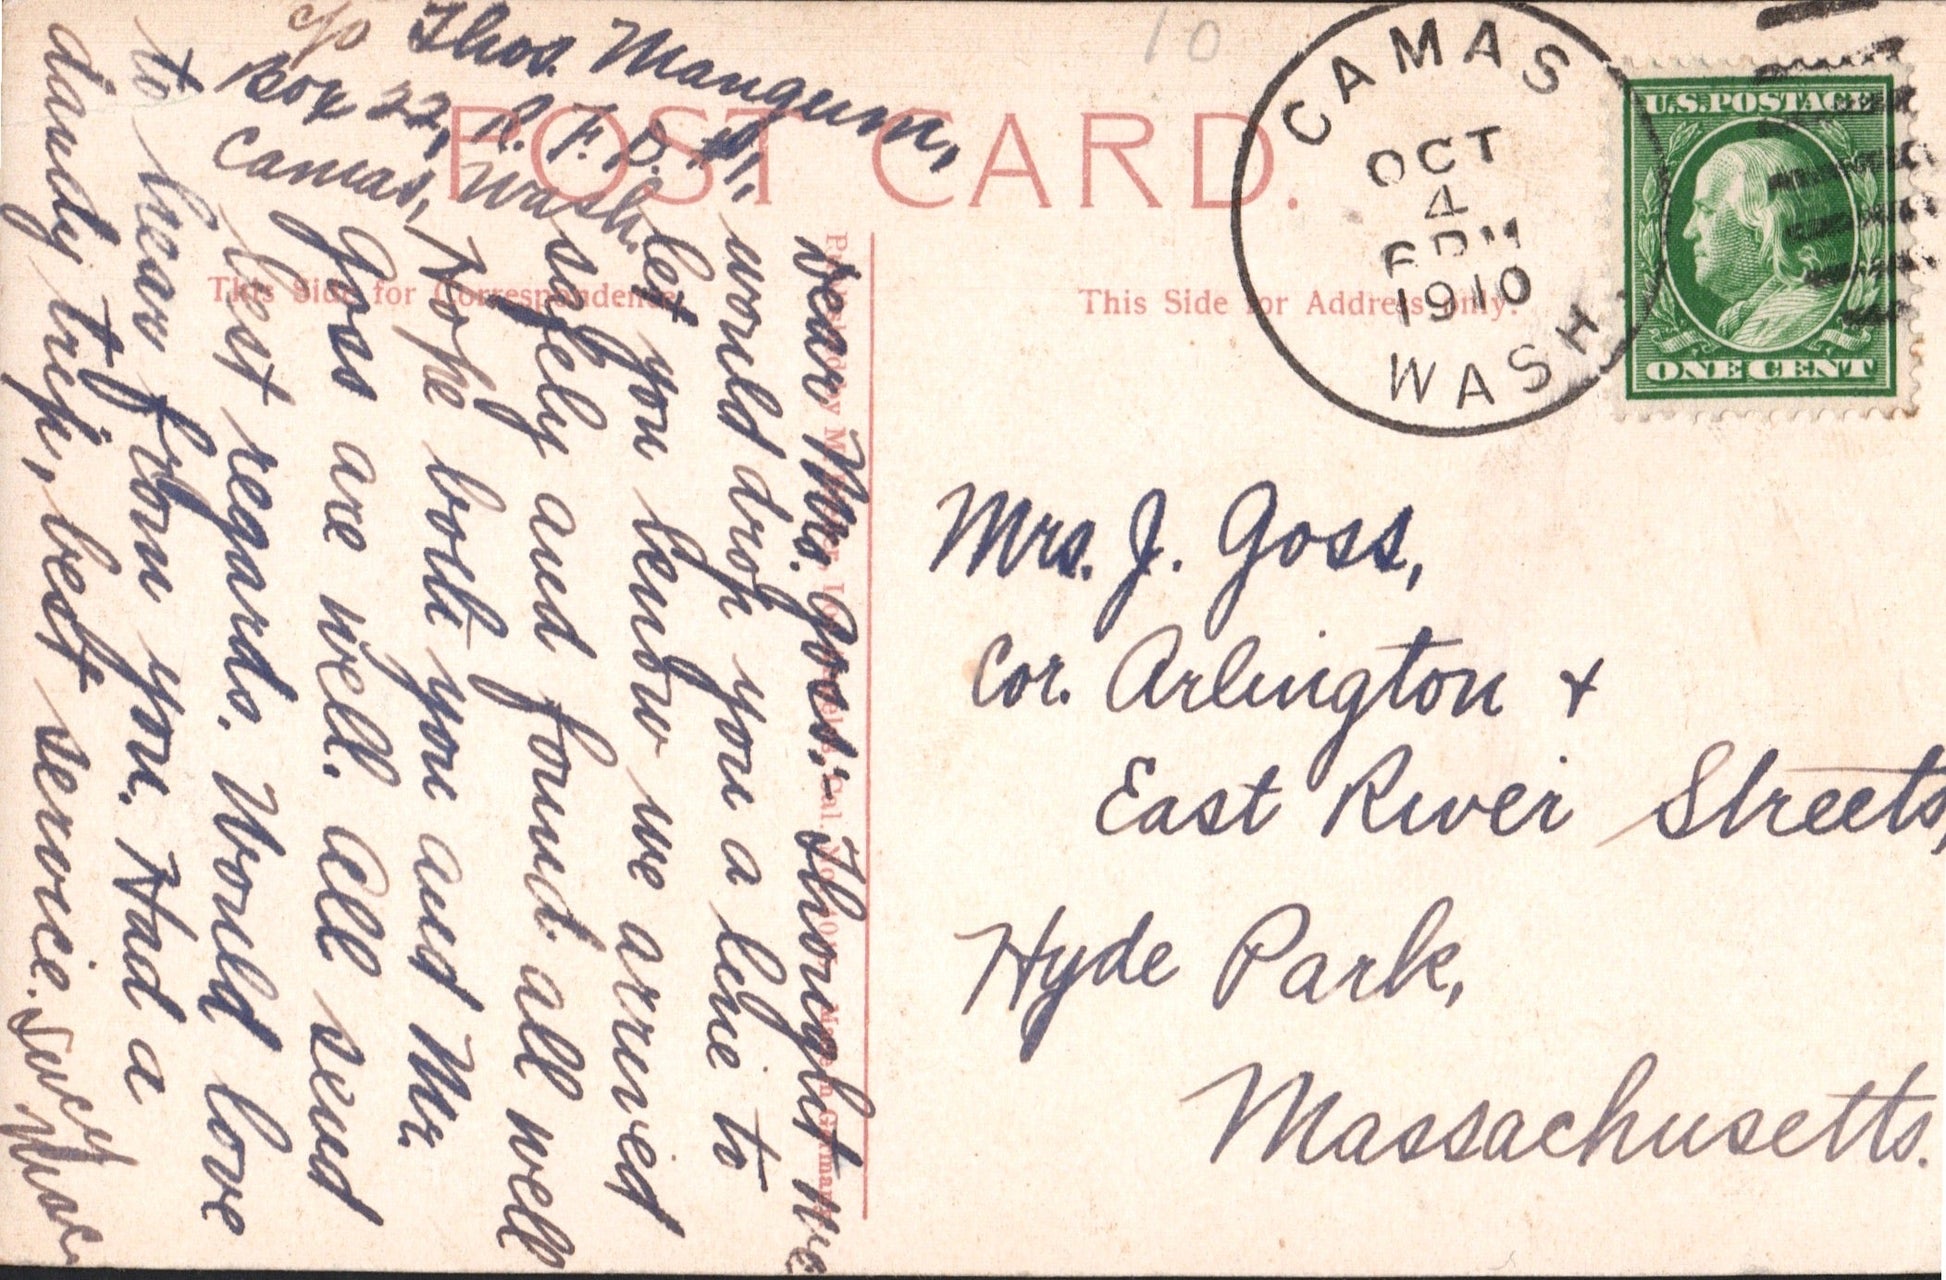 c/o Thos. Mangum,
Box 22, R. F. D. #1,
Camas, Wash.
10
POST CARD.
This Side for Correspondence
This Side for Address only.
CAMAS
OCT
4
6 PM
1910
WASH.
U.S. POSTAGE
ONE CENT
Dear Mrs. Goss:- Thought we
would drop you a line to
let you know we arrived
safely and found all well
Hope both you and Mr.
Goss are well. All send
best regards. Would love
to hear from you. Had a
dandy trip, best service.
Mrs. J. Goss,
Cor. Arlington +
East River Streets,
Hyde Park,
Massachusetts.